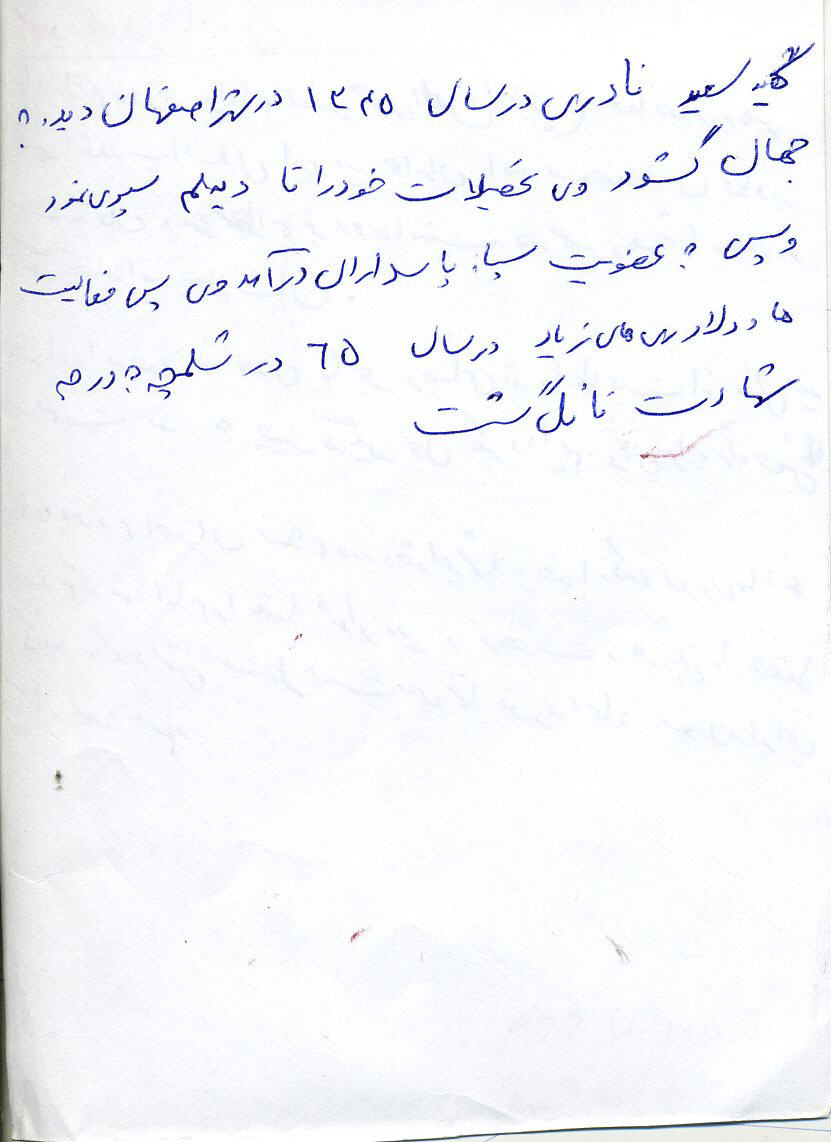 شهید سعید نادری در سال ۱۳۴۵ در شهر اصفهان دیده به
جهان گشود وی تحصیلات خود را تا دیپلم سپری نمود
و سپس به عضویت سپاه پاسداران درآمد وی پس فعالیت
ها و دلاوری های زیاد در سال ٦٥ در شلمچه به درجه
شهادت نائل گشت